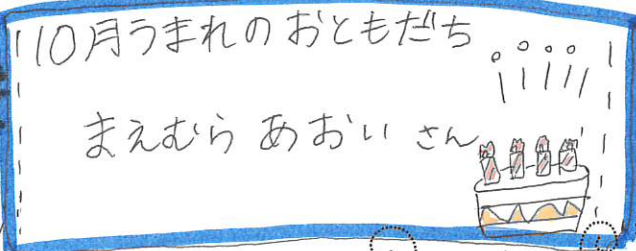 10月うまれのおともだち
まえむら あおい さん